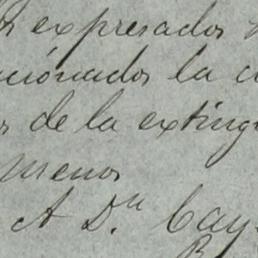 os expresados
cionados la
os de la exting
menos
A Dn. Cay